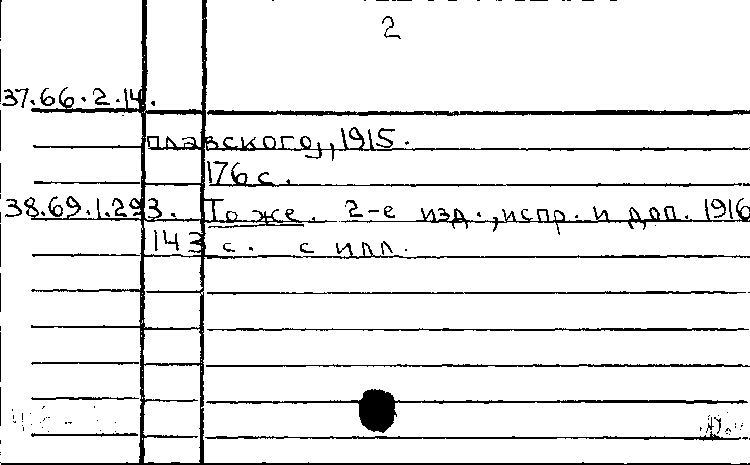 2
37.66.2.14.
плавского,, 1915.
176 с.
38.69.1.293. То же. 2-е изд., испр. и доп. 1916
143 с. с илл.